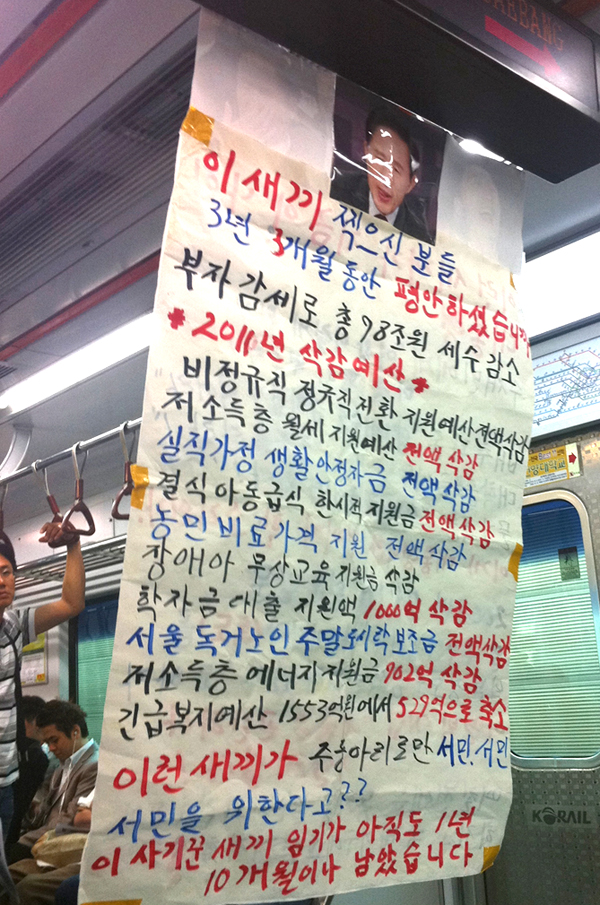 이 새끼 찍으신 분들
3년 3개월 동안 평안하셨습니까
부자감세로 총 98조원 세수 감소
* 2011년 삭감예산 *
비정규직 정규직전환 지원예산전액삭감
저소득층 월세지원예산 전액 삭감
실직가정 생활안정자금 전액 삭감
결식아동급식 한시적지원금 전액삭감
농민비료가격 지원 전액삭감
장애아 무상교육지원금 삭감
학자금대출 지원액 1000억 삭감
서울 독거노인 주말도시락 보조금 전액삭감
저소득층 에너지지원금 902억 삭감
긴급복지예산 1553억원에서 529억으로 축소
이런 새끼가 주둥아리로만 서민, 서민
서민을 위한다고??
이 사기꾼 새끼 임기가 아직도 1년
10개월이나 남았습니다
KORAIL